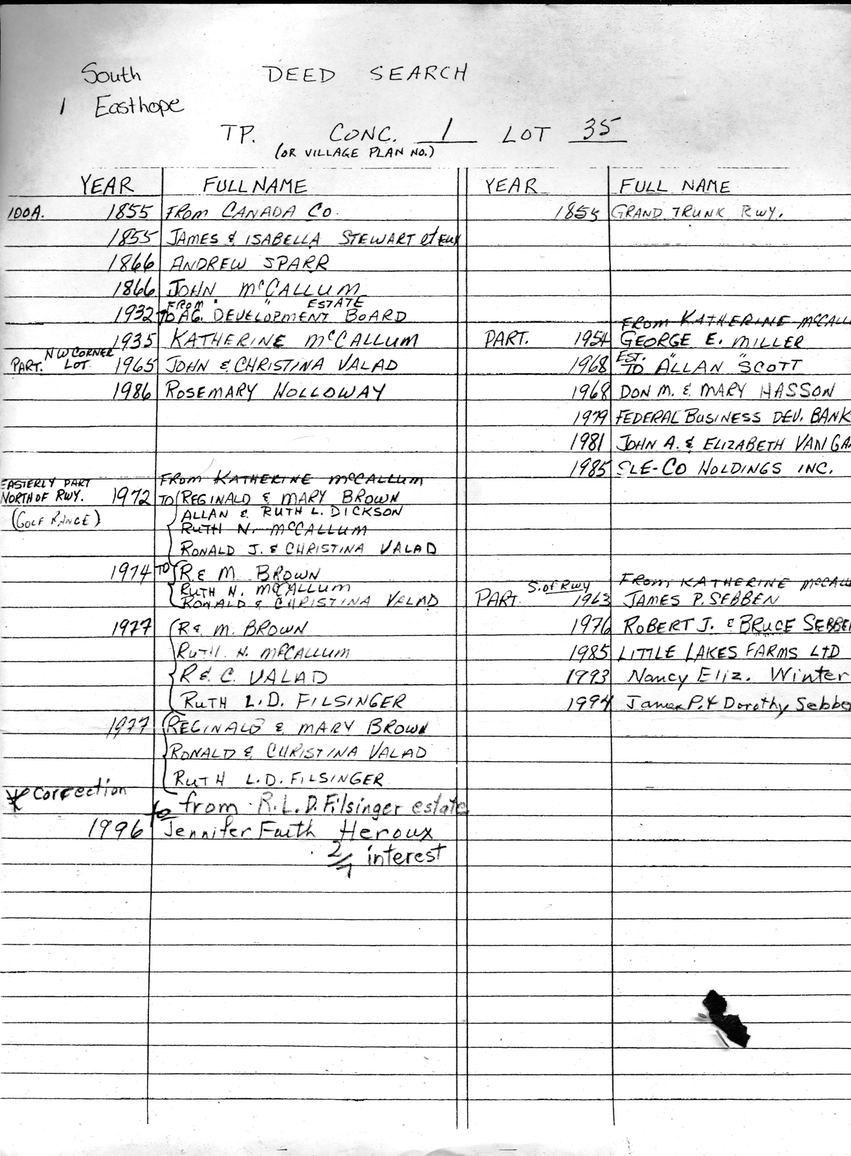 South DEED SEARCH
1 Easthope
TP. CONC. 1 LOT 35
(OR VILLAGE PLAN NO.)
YEAR FULL NAME
100A. 1855 FROM CANADA CO.
1855 JAMES & ISABELLA STEWART et ux
1866 ANDREW SPARR
1866 JOHN McCALLUM
FROM " " ESTATE
1932 TO AG. DEVELOPMENT BOARD
1935 KATHERINE McCALLUM
N W CORNER
PART. LOT. 1965 JOHN & CHRISTINA VALAD
1986 ROSEMARY HOLLOWAY
EASTERLY PART FROM KATHERINE McCALLUM
NORTH OF RWY. 1972 TO REGINALD & MARY BROWN
(GOLF RANGE) ALLAN & RUTH L. DICKSON
RUTH N. McCALLUM
RONALD J. & CHRISTINA VALAD
1974 TO R & M BROWN
RUTH N. McCALLUM
RONALD & CHRISTINA VALAD
1977 R & M. BROWN
RUTH. N. McCALLUM
R & C. VALAD
RUTH L.D. FILSINGER
1977 REGINALD & MARY BROWN
RONALD & CHRISTINA VALAD
RUTH L.D. FILSINGER
* Correction
from R.L.D. Filsinger estate
to
1996 Jennifer Faith Heroux
2/7 interest
YEAR FULL NAME
1855 GRAND TRUNK RWY.
FROM KATHERINE McCALL
PART. 1954 GEORGE E. MILLER
EST. " "
1968 TO ALLAN SCOTT
1968 DON M. & MARY HASSON
1979 FEDERAL BUSINESS DEV. BANK
1981 JOHN A. & ELIZABETH VAN GA
1985 SLE-CO HOLDINGS INC.
S. of Rwy FROM KATHERINE McCALL
PART. 1963 JAMES P. SEBBEN
1976 ROBERT J. & BRUCE SEBBE
1985 LITTLE LAKES FARMS LTD
1993 Nancy Eliz. Winter
1994 James P. & Dorothy Sebbe